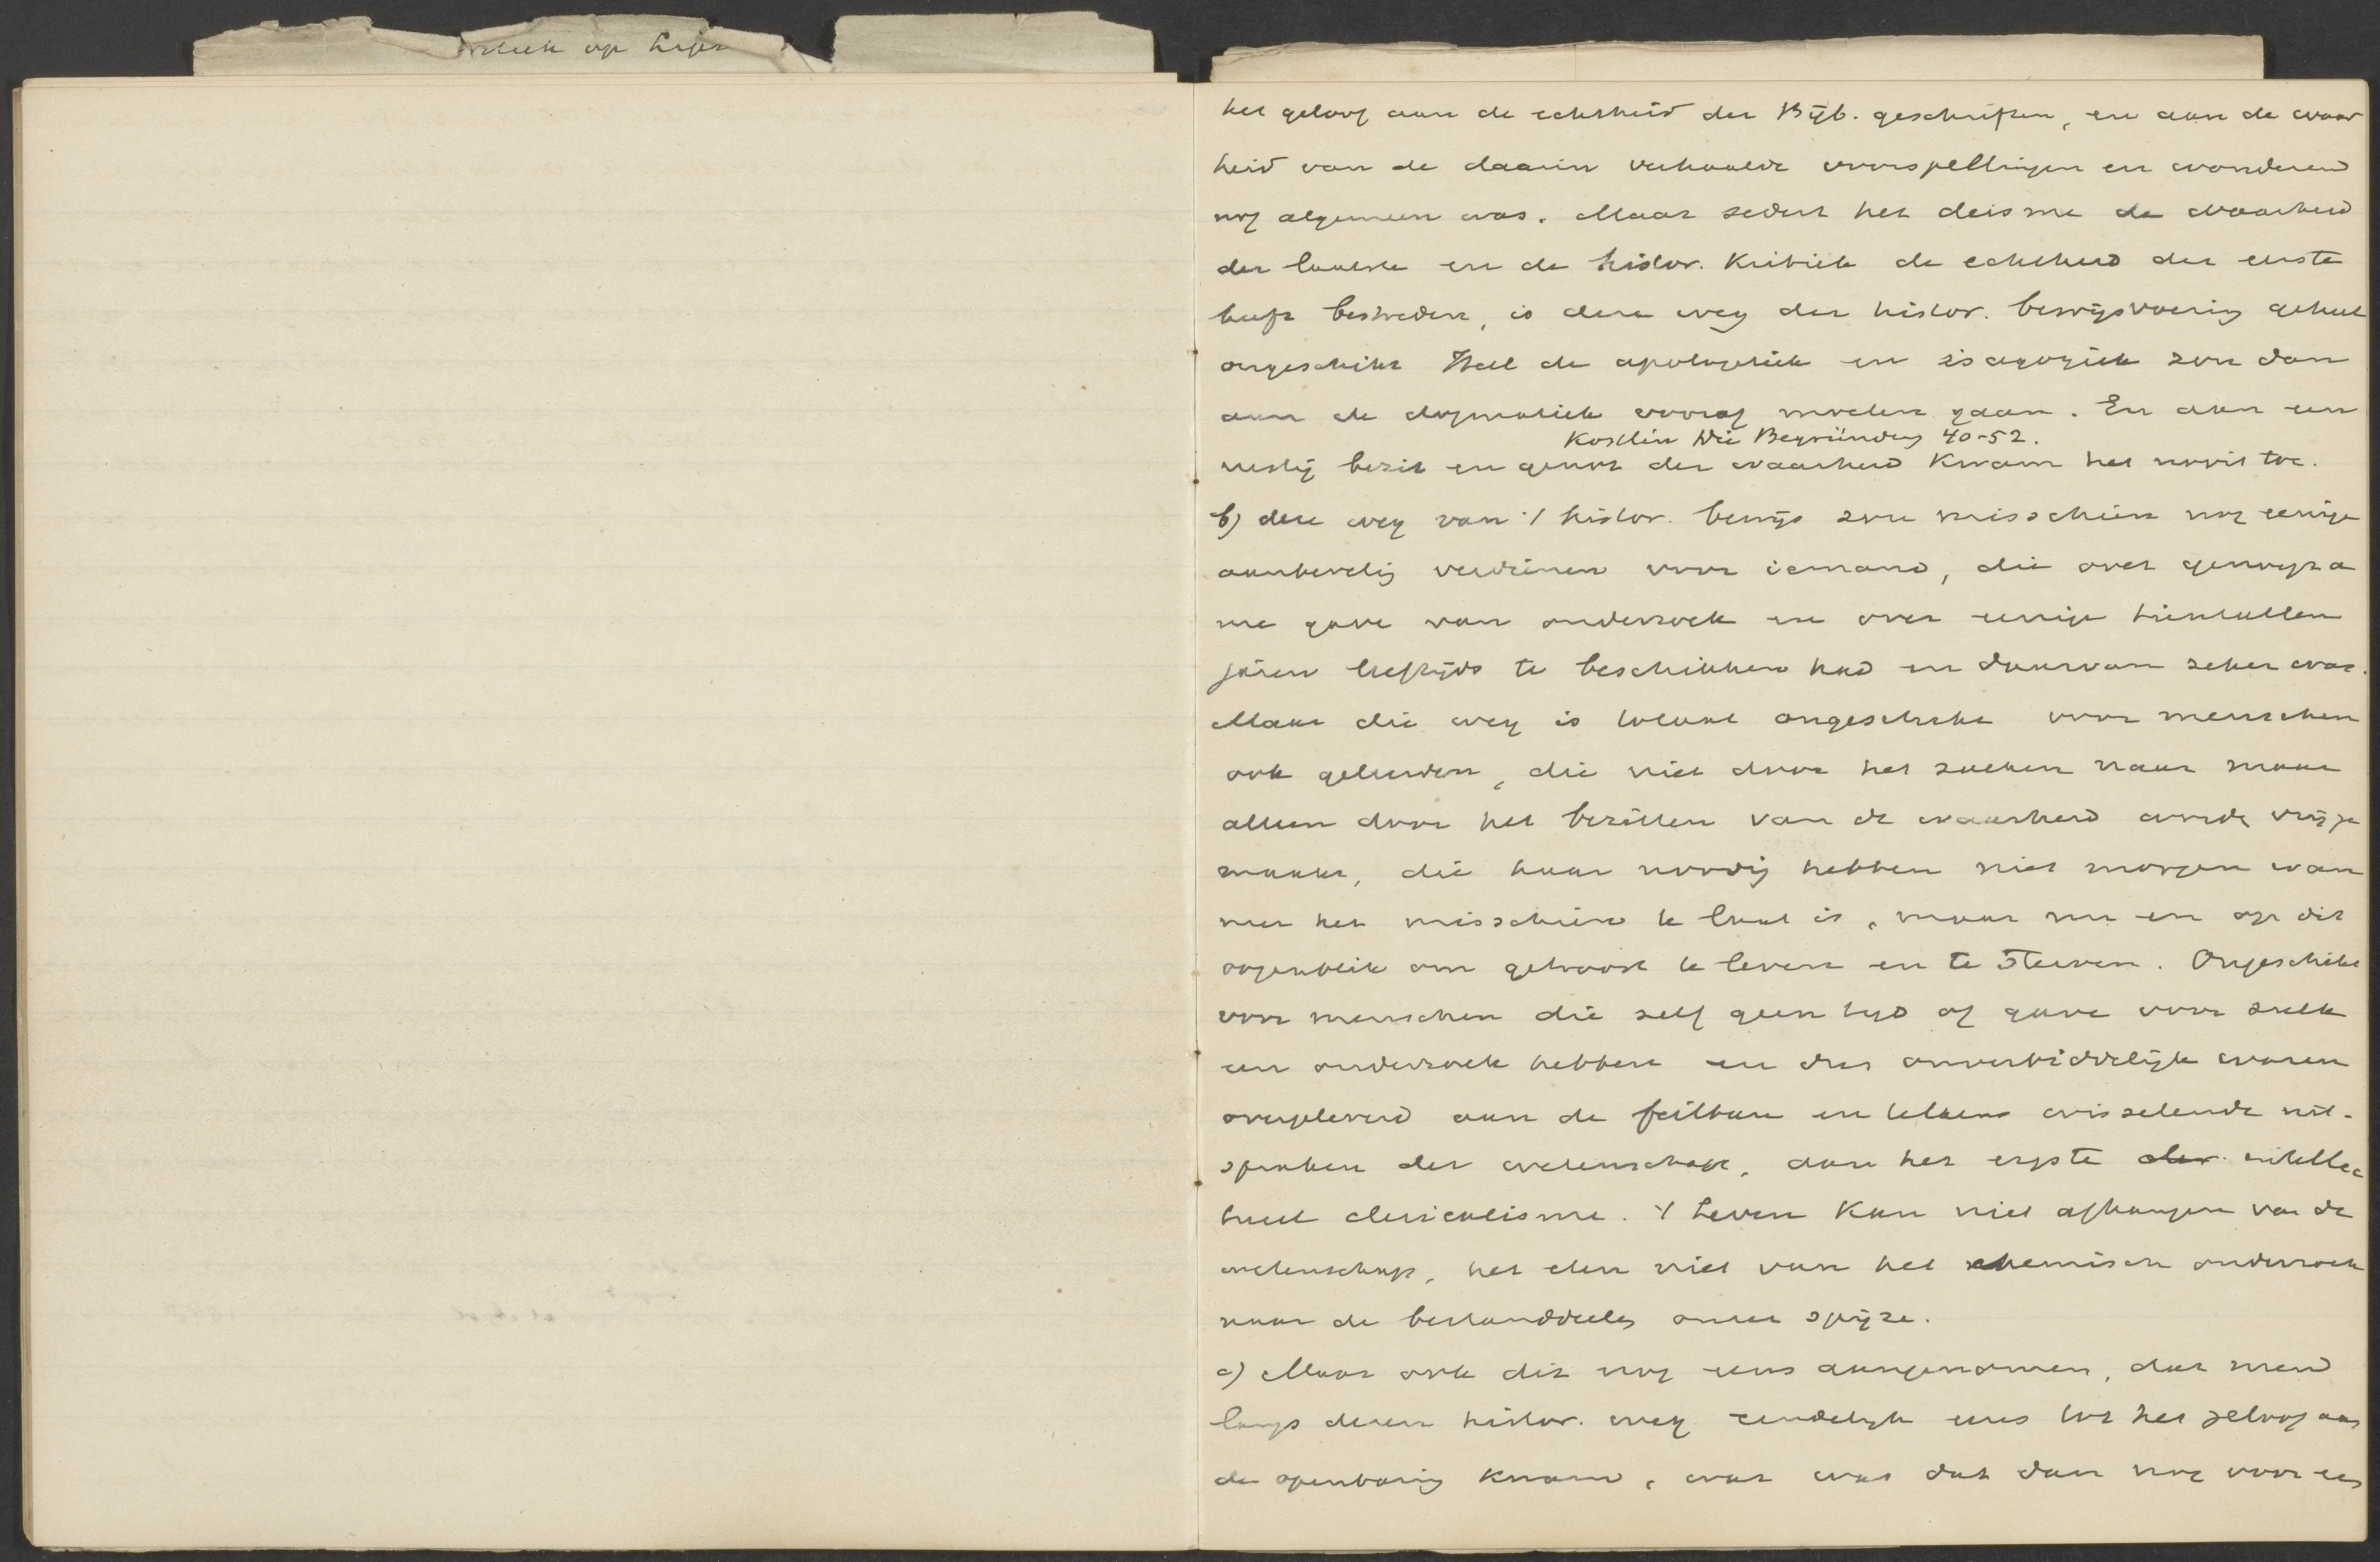 op
het geloof aan de echtheid der Bijb. geschriften, en aan de waar
heid van de daarin verhaalde voorspellingen en wonderen
nog algemeen was. Maar sedert het deisme de waarheid
der laatste en de histor. Kritiek de echtheid der eerste
heeft bestreden, is deze weg der histor. bewijsvoering geheel
ongeschikt Heel de apologetiek en isagogiek zou dan
aan de dogmatiek vooraf moeten gaan. En aan een
Kostlin Die Begründung 40-52.
rustig bezit en genot der waarheid kwam het nooit toe.
b) deze weg van 't histor. bewijs zou misschien nog eenige
aanbeveling verdienen voor iemand, die over genoegza
me gave van onderzoek en over eenige tientallen
jaren leeftijds te beschikken had en daarvan zeker was.
Maar die weg is totaal ongeschikt voor menschen
ook geleerden, die niet door het zoeken naar maar
alleen door het bezitten van de waarheid worde vrijge
maakt, die haar noodig hebben niet morgen wan
neer het misschien te laat is, maar nu en op dit
oogenblik om getroost te leven en te sterven. Ongeschikt
voor menschen die zelf geen tijd of gave voor zulk
een onderzoek hebben en dus onverbiddelijk waren
overgeleverd aan de feilbare en telkens wisselende uit-
spraken der wetenschap, aan het ergste der intellec
tueel clericalisme. 't Leven kan niet afhangen van de
wetenschap, het eten niet van het chemisch onderzoek
naar de bestanddeelen onzer spijze.
c) Maar ook dit nog eens aangenomen, dat men
langs dezen histor. weg eindelijk eens tot het geloof aan
de openbaring kwam, wat was dat dan nog voor een